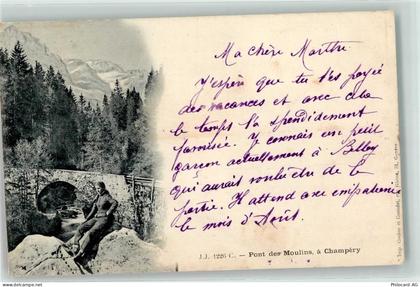 Ma chère Marthe
J'espère que tu t'es payée
des vacances et avec cela
le temps t'a splendidement
favorisée. Y connais un petit
garçon actuellement à Belloy
qui aurait voulu être de la
partie. Il attend avec impatience
le mois d'Août.
J.J. 1226 C. – Pont des Moulins, à Champéry